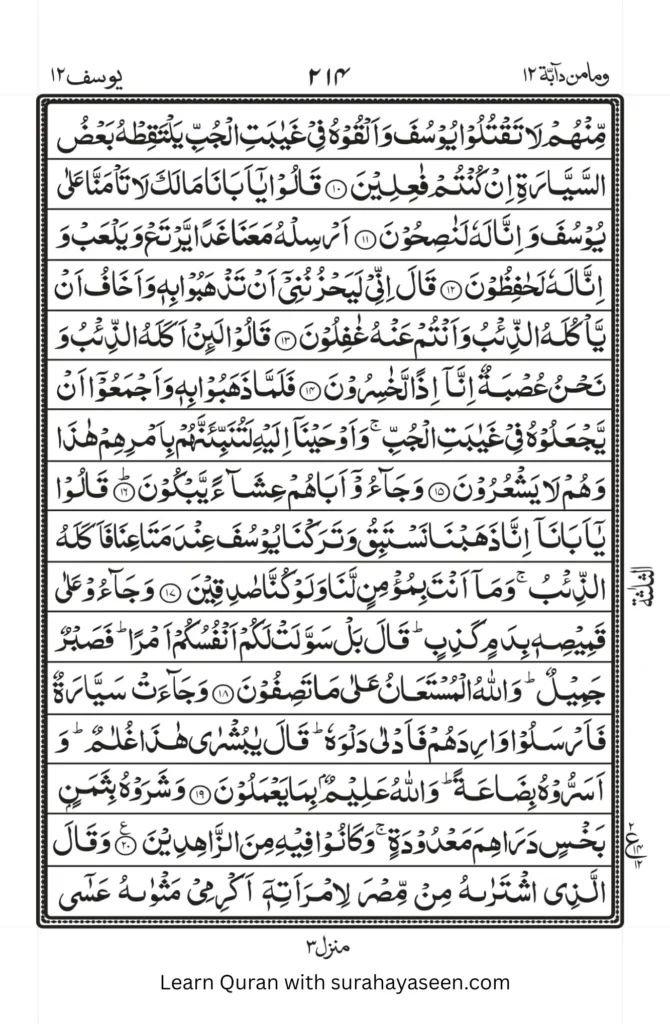 وما من دآبة ١٢ ٢١٤ يوسف ١٢
مِّنْهُمْ لَا تَقْتُلُوْا يُوْسُفَ وَاَلْقُوْهُ فِيْ غَيٰبَتِ الْجُبِّ يَلْتَقِطْهُ بَعْضُ
السَّيَّارَةِ اِنْ كُنْتُمْ فٰعِلِيْنَ ﴿١٠﴾ قَالُوْا يٰٓاَبَانَا مَالَكَ لَا تَاْمَنَّا عَلٰى
يُوْسُفَ وَاِنَّا لَهٗ لَنٰصِحُوْنَ ﴿١١﴾ اَرْسِلْهُ مَعَنَا غَدًا يَّرْتَعْ وَيَلْعَبْ وَ
اِنَّا لَهٗ لَحٰفِظُوْنَ ﴿١٢﴾ قَالَ اِنِّيْ لَيَحْزُنُنِيْٓ اَنْ تَذْهَبُوْا بِهٖ وَاَخَافُ اَنْ
يَّاْكُلَهُ الذِّئْبُ وَاَنْتُمْ عَنْهُ غٰفِلُوْنَ ﴿١٣﴾ قَالُوْا لَئِنْ اَكَلَهُ الذِّئْبُ وَ
نَحْنُ عُصْبَةٌ اِنَّآ اِذًا لَّخٰسِرُوْنَ ﴿١٤﴾ فَلَمَّا ذَهَبُوْا بِهٖ وَاَجْمَعُوْٓا اَنْ
يَّجْعَلُوْهُ فِيْ غَيٰبَتِ الْجُبِّ ۚ وَاَوْحَيْنَآ اِلَيْهِ لَتُنَبِّئَنَّهُمْ بِاَمْرِهِمْ هٰذَا
وَهُمْ لَا يَشْعُرُوْنَ ﴿١٥﴾ وَجَآءُوْٓ اَبَاهُمْ عِشَآءً يَّبْكُوْنَ ﴿١٦﴾ؕ قَالُوْا
يٰٓاَبَانَآ اِنَّا ذَهَبْنَا نَسْتَبِقُ وَتَرَكْنَا يُوْسُفَ عِنْدَ مَتَاعِنَا فَاَكَلَهُ
الذِّئْبُ ۚ وَمَآ اَنْتَ بِمُؤْمِنٍ لَّنَا وَلَوْ كُنَّا صٰدِقِيْنَ ﴿١٧﴾ وَجَآءُوْ عَلٰى
قَمِيْصِهٖ بِدَمٍ كَذِبٍ ؕ قَالَ بَلْ سَوَّلَتْ لَكُمْ اَنْفُسُكُمْ اَمْرًا ؕ فَصَبْرٌ
جَمِيْلٌ ؕ وَاللّٰهُ الْمُسْتَعَانُ عَلٰى مَا تَصِفُوْنَ ﴿١٨﴾ وَجَآءَتْ سَيَّارَةٌ
فَاَرْسَلُوْا وَارِدَهُمْ فَاَدْلٰى دَلْوَهٗ ؕ قَالَ يٰبُشْرٰى هٰذَا غُلٰمٌ ؕ وَ
اَسَرُّوْهُ بِضَاعَةً ؕ وَاللّٰهُ عَلِيْمٌۢ بِمَا يَعْمَلُوْنَ ﴿١٩﴾ وَشَرَوْهُ بِثَمَنٍۢ
بَخْسٍ دَرَاهِمَ مَعْدُوْدَةٍ ۚ وَكَانُوْا فِيْهِ مِنَ الزَّاهِدِيْنَ ﴿٢٠﴾ع وَقَالَ
الَّذِى اشْتَرٰىهُ مِنْ مِّصْرَ لِامْرَاَتِهٖٓ اَكْرِمِيْ مَثْوٰىهُ عَسٰٓى
الثلثة
٢
ع ١٤
١٢
منزل ٣
Learn Quran with surahayaseen.com